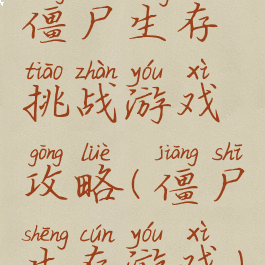 僵尸生存
tiāo zhàn yóu xì
挑战游戏
gōng lüè jiāng shī
攻略(僵尸
shēng cún yóu xì
生存游戏)